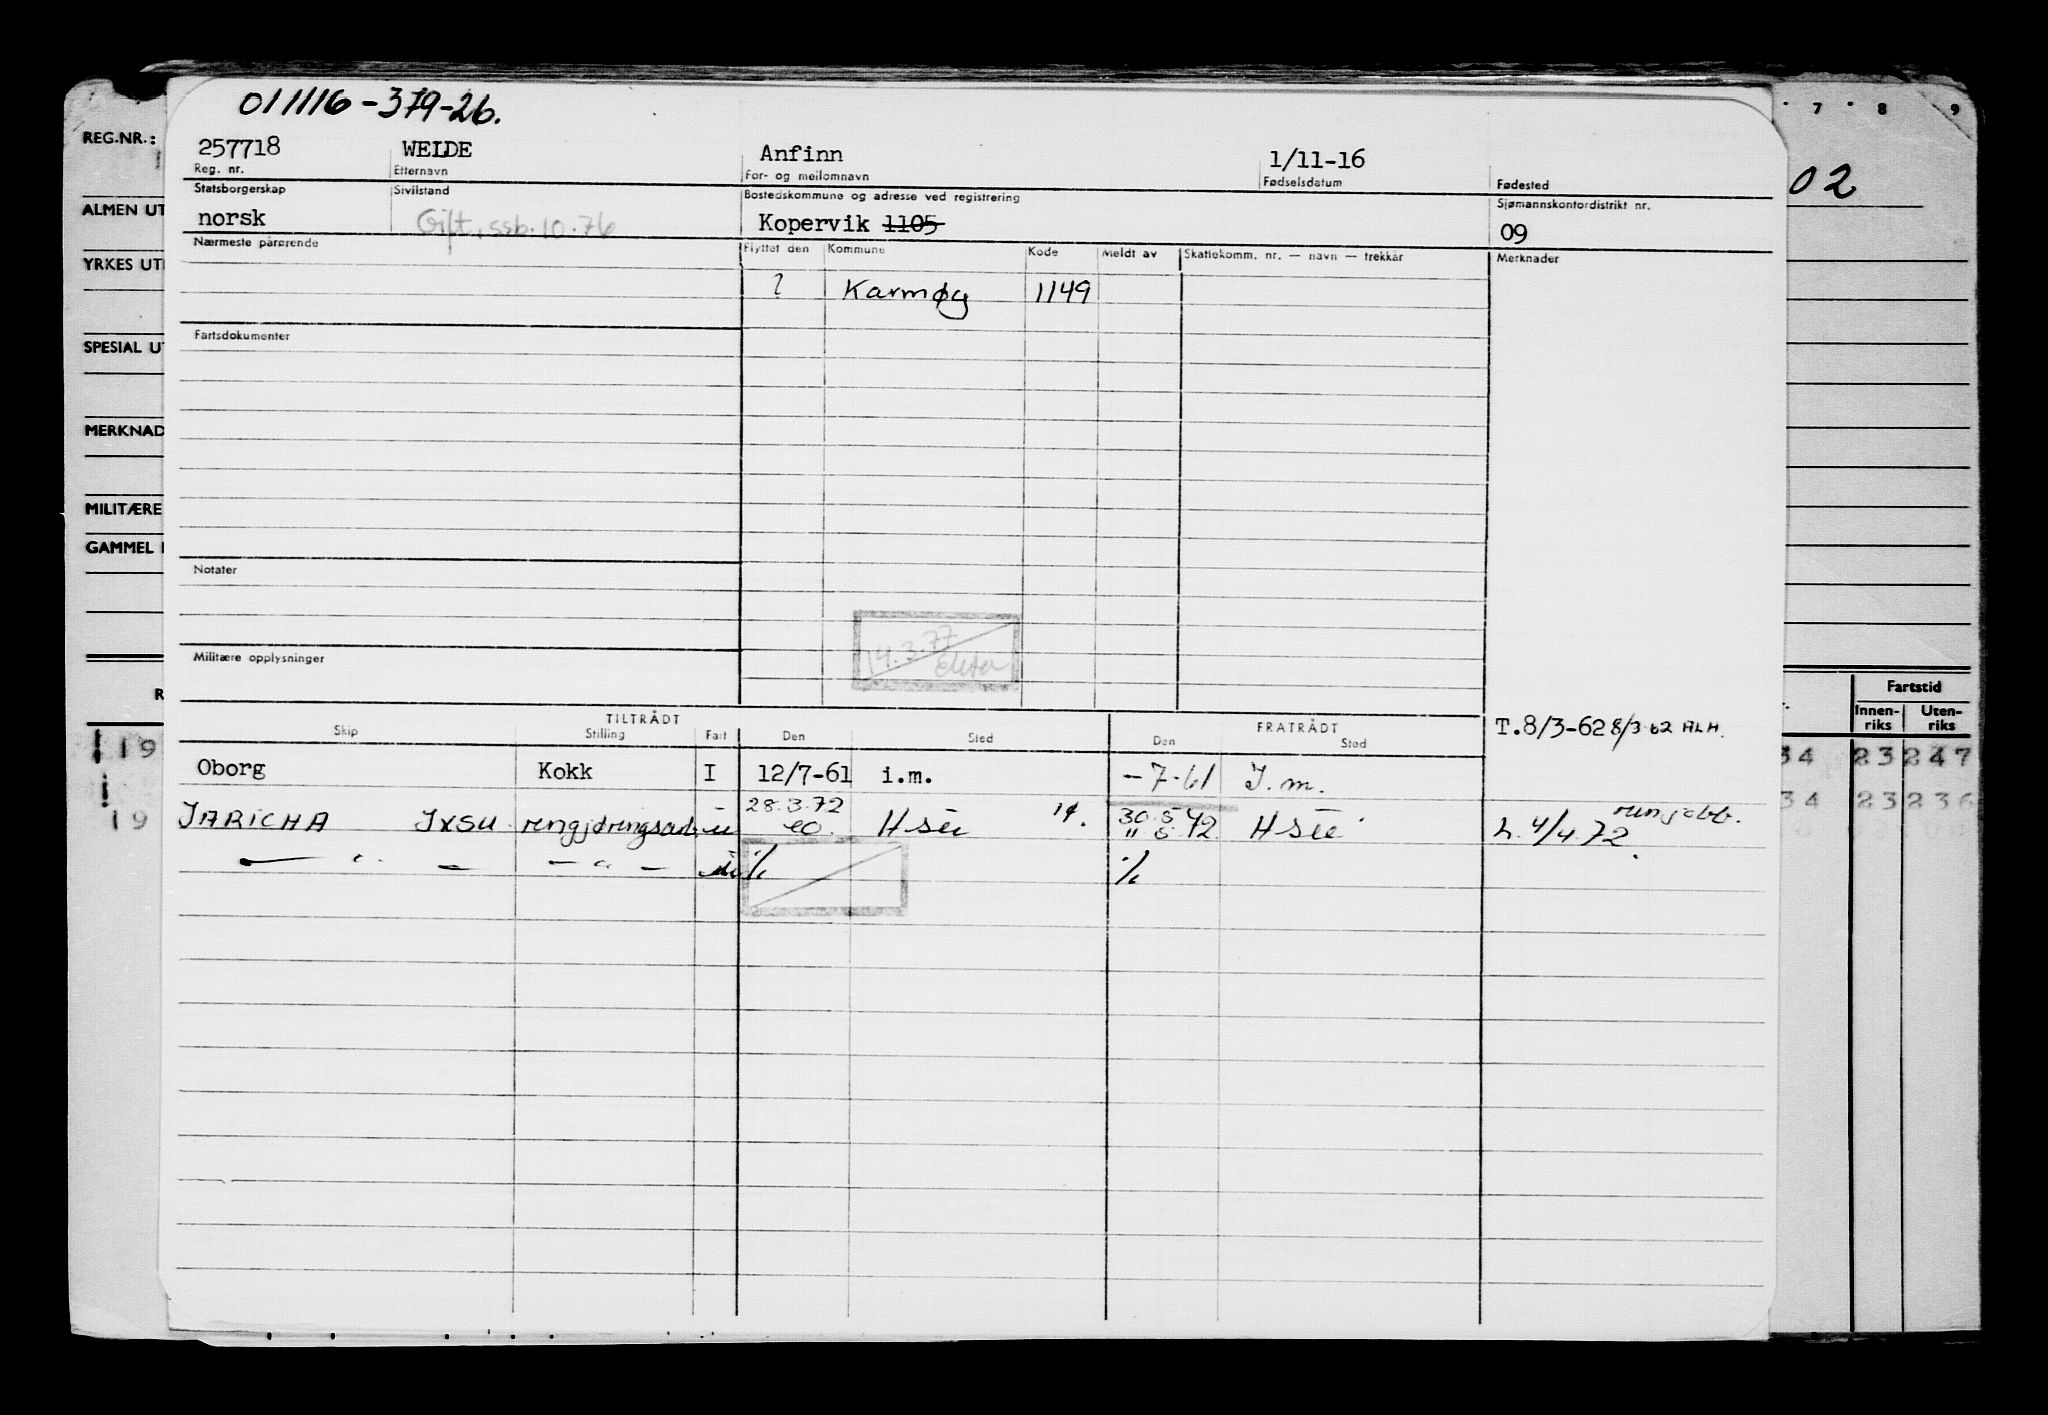 011116-379-26.
7 8 9
REG.NR.:
257718 WEIDE Anfinn 1/11-16
Reg. nr. Etternavn For- og mellomnavn Fødselsdatum Fødested
02
Statsborgerskap Sivilstand Bostedskommune og adresse ved registrering Sjømannskontordistrikt nr.
ALMEN UT
norsk Gift, ssb. 10.76 Kopervik 1105 09
Nærmeste pårørende Flyttet den Kommune Kode Meldt av Skattekomm. nr. — navn — trekkår Merknader
YRKES UT
? Karmøy 1149
Fartsdokumenter
SPESIAL UT
MERKNAD
MILITÆRE
GAMMEL
Notater
14.3.77
Militære opplysninger
R
Fartstid
Innen-riks Uten-riks
TILTRÅDT FRATRÅDT
Skip Stilling Fart Den Sted Den Sted
T.8/3-62 8/3-62 ALH.
19 34 23 247
Oborg Kokk I 12/7-61 i.m. -7-61 I.m.
34 23 236
28.3.72 30.5
19
JARICHA JXSU rengjøringsarb. u 14. " 5.72 L. 4/4.72 rengjobb.
— " — — " — % %